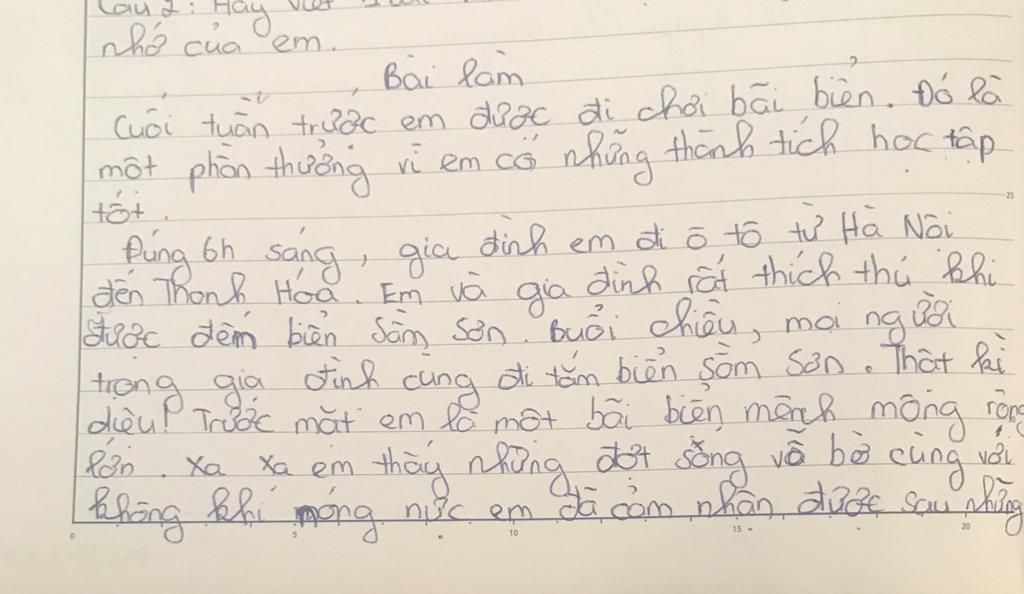 Câu 2: Hãy viết
nhớ của em.
Bài làm
Cuối tuần trước em được đi chơi bãi biển. Đó là
một phần thưởng vì em có những thành tích học tập
tốt.
Đúng 6h sáng, gia đình em đi ô tô từ Hà Nội
đến Thanh Hóa. Em và gia đình rất thích thú khi
được đếm biển Sầm Sơn. Buổi chiều, mọi người
trong gia đình cùng đi tắm biển Sầm Sơn. Thật kì
diệu! Trước mắt em là một bãi biển mênh mông rộng
lớn. Xa xa em thấy những đợt sóng vỗ bờ cùng với
không khí nóng nực em đã cảm nhận được sau những
0 5 10 15 20
25